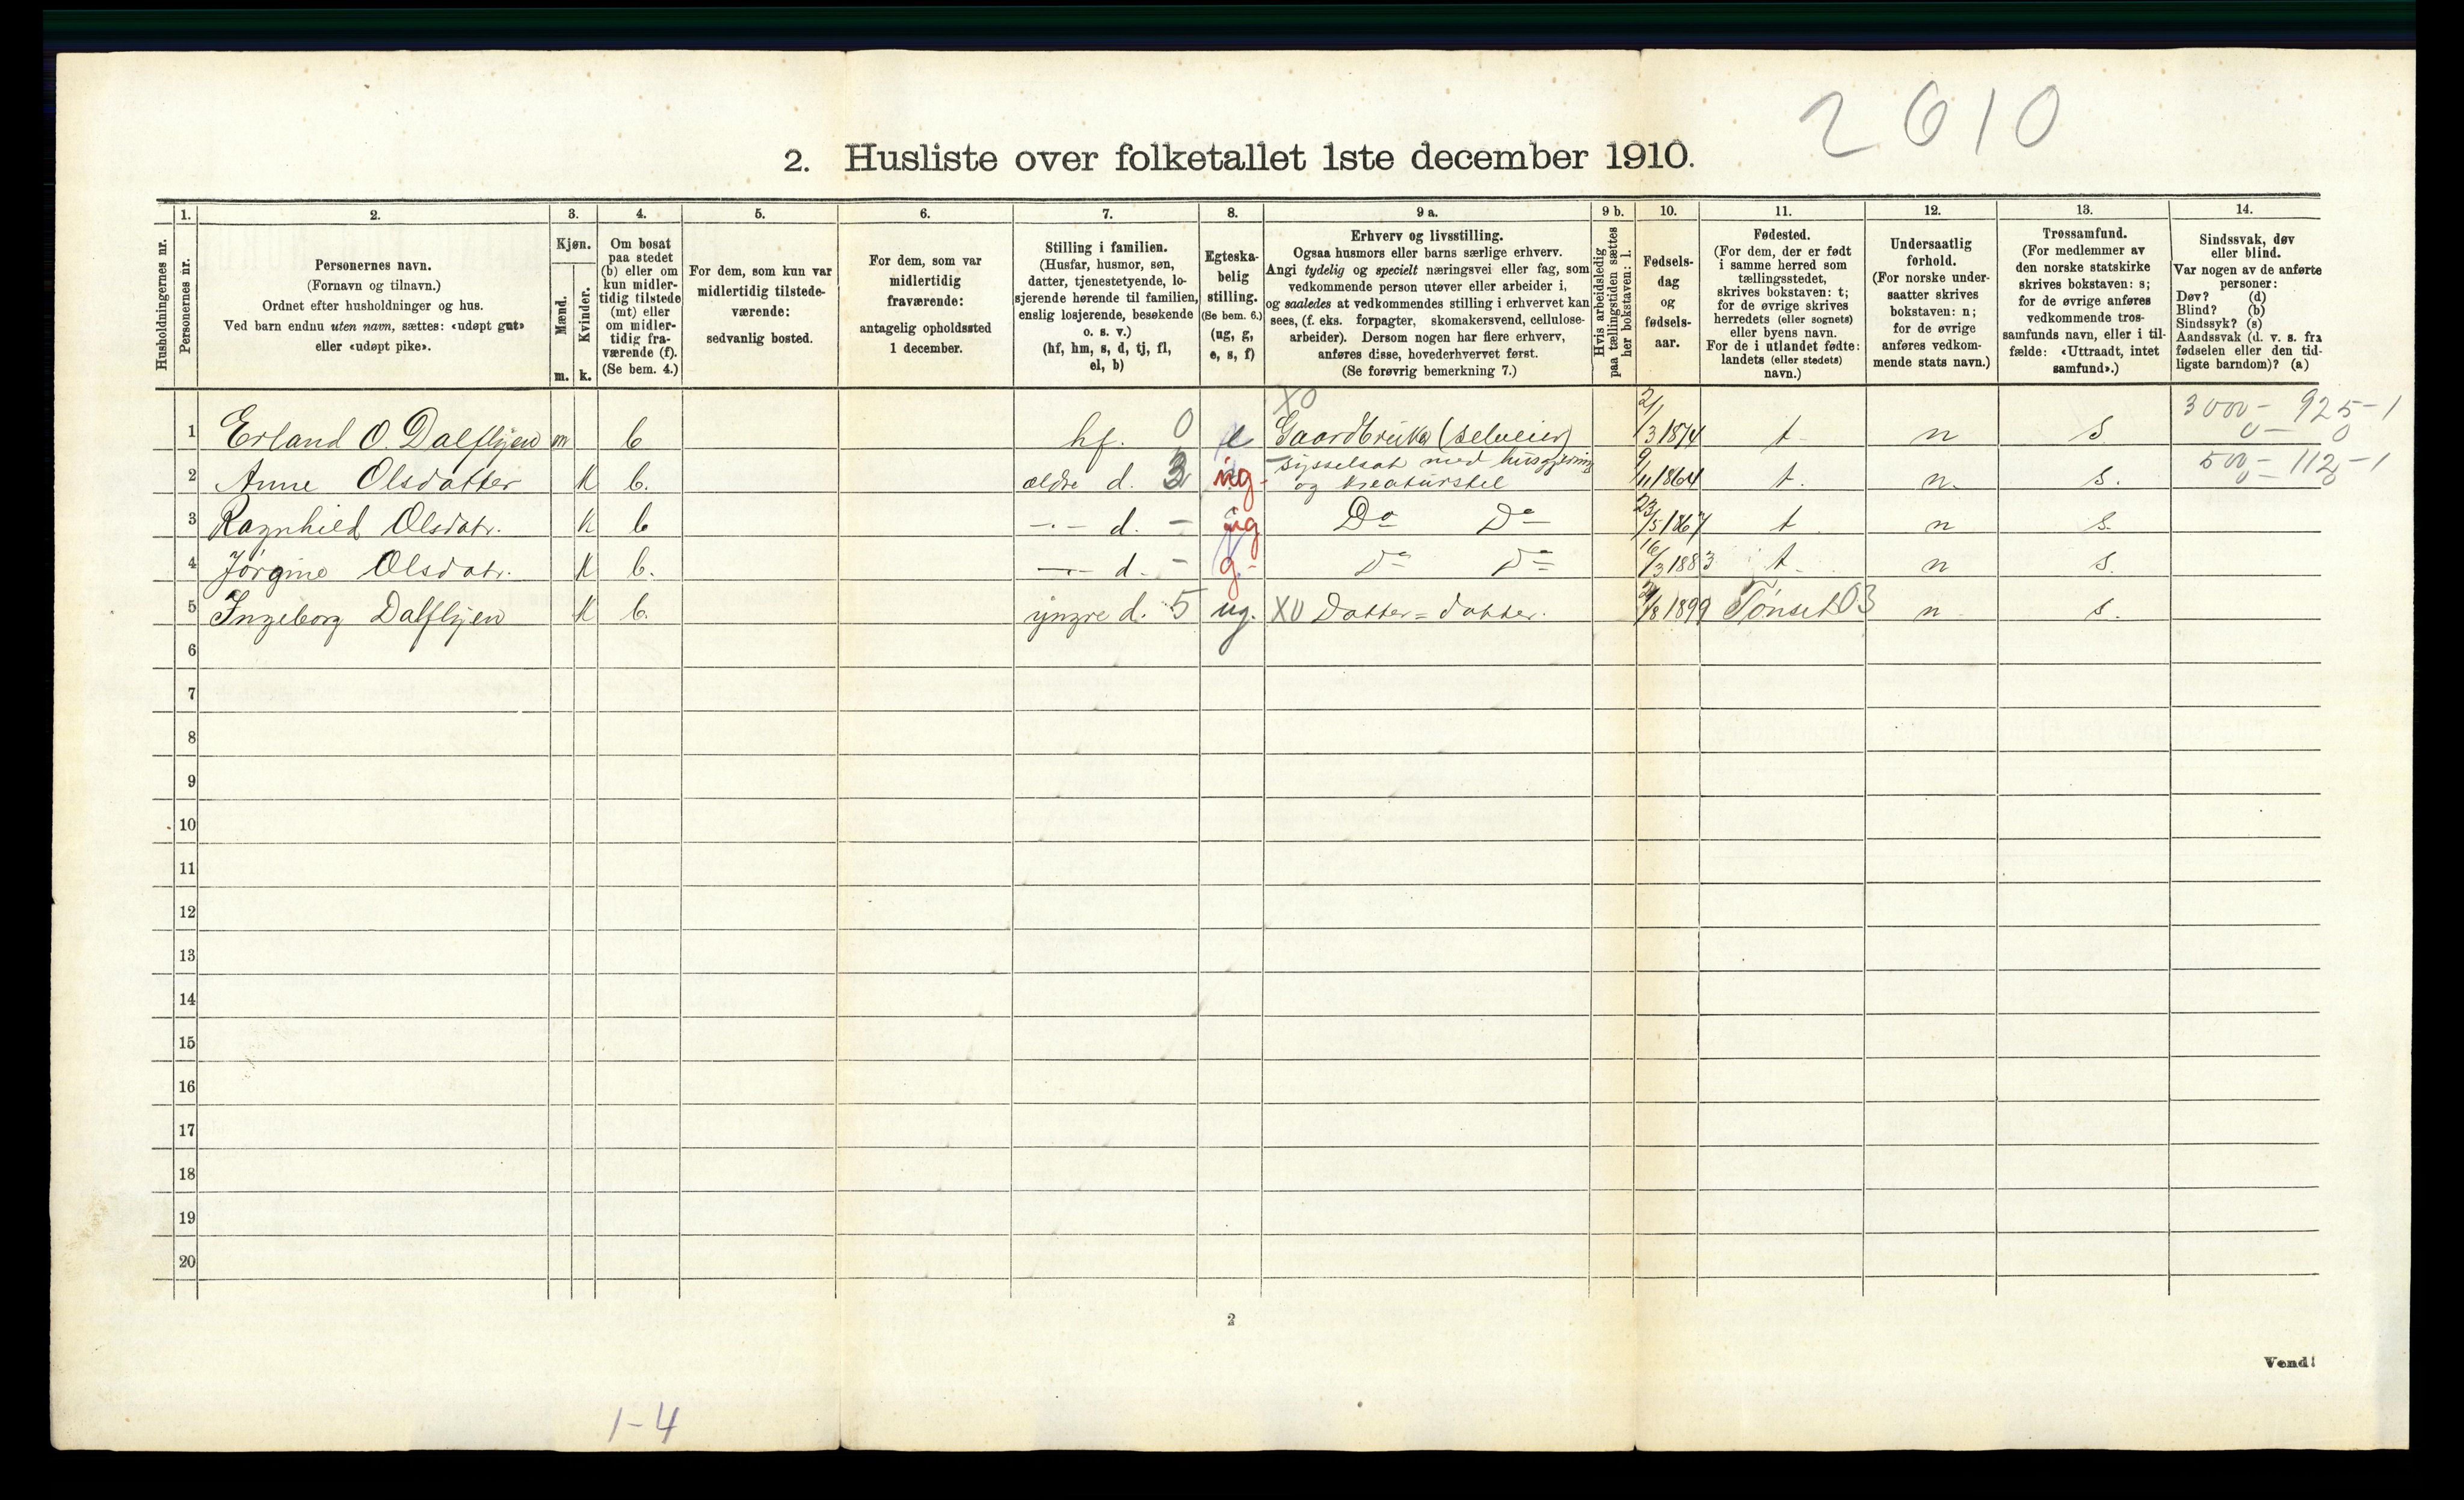 2610
2. Husliste over folketallet 1ste december 1910.
Husholdningernes nr.
1.
Personernes nr.
2.
Personernes navn.
(Fornavn og tilnavn.)
Ordnet efter husholdninger og hus.
Ved barn endnu uten navn, sættes: «udøpt gut»
eller «udøpt pike».
3.
Kjøn.
Mænd.
Kvinder.
m. k.
4.
Om bosat
paa stedet
(b) eller om
kun midler-
tidig tilstede
(mt) eller
om midler-
tidig fra-
værende (f).
(Se bem. 4.)
5.
For dem, som kun var
midlertidig tilstede-
værende:
sedvanlig bosted.
6.
For dem, som var
midlertidig
fraværende:
antagelig opholdssted
1 december.
7.
Stilling i familien.
(Husfar, husmor, søn,
datter, tjenestetyende, lo-
sjerende hørende til familien,
enslig losjerende, besøkende
o. s. v.)
(hf, hm, s, d, tj, fl,
el, b)
8.
Egteska-
belig
stilling.
(Se bem. 6.)
(ug, g,
e, s, f)
9 a.
Erhverv og livsstilling.
Ogsaa husmors eller barns særlige erhverv.
Angi tydelig og specielt næringsvei eller fag, som
vedkommende person utøver eller arbeider i,
og saaledes at vedkommendes stilling i erhvervet kan
sees, (f. eks. forpagter, skomakersvend, cellulose-
arbeider). Dersom nogen har flere erhverv,
anføres disse, hovederhvervet først.
(Se forøvrig bemerkning 7.)
9 b.
Hvis arbeidsledig
paa tællingstiden sættes
her bokstaven: l.
10.
Fødsels-
dag
og
fødsels-
aar.
11.
Fødested.
(For dem, der er født
i samme herred som
tællingsstedet,
skrives bokstaven: t;
for de øvrige skrives
herredets (eller sognets)
eller byens navn.
For de i utlandet fødte:
landets (eller stedets)
navn.)
12.
Undersaatlig
forhold.
(For norske under-
saatter skrives
bokstaven: n;
for de øvrige
anføres vedkom-
mende stats navn.)
13.
Trossamfund.
(For medlemmer av
den norske statskirke
skrives bokstaven: s;
for de øvrige anføres
vedkommende tros-
samfunds navn, eller i til-
fælde: «Uttraadt, intet
samfund».)
14.
Sindssvak, døv
eller blind.
Var nogen av de anførte
personer:
Døv? (d)
Blind? (b)
Sindssyk? (s)
Aandssvak (d. v. s. fra
fødselen eller den tid-
ligste barndom)? (a)
1 Erland O. Dalflyen m b hf. 0 e XO Gaardbruker (selveier) 2/3 1874 t n s 3000 - 925 - 1
0 - 0
2 Anne Olsdatter k b. ældre d. 3 ug - sysselsat med husgjerning
og kreaturstel 9/11 1864 t. n. s. 500 - 112 - 1
0 - 0
3 Ragnhild Olsdatr. k b -.- d. - ug Do Do 23/5 1867 t n s.
4 Jørgine Olsdatr. k b. -.- d. - g - Do Do 16/3 1883 t. n s.
5 Ingeborg Dalflyen k b. yngre d. 5 ug. XO Datter = datter. /8 1899 Tønset 03 n s.
6
7
8
9
10
11
12
13
14
15
16
17
18
19
20
2
Vend!
1-4